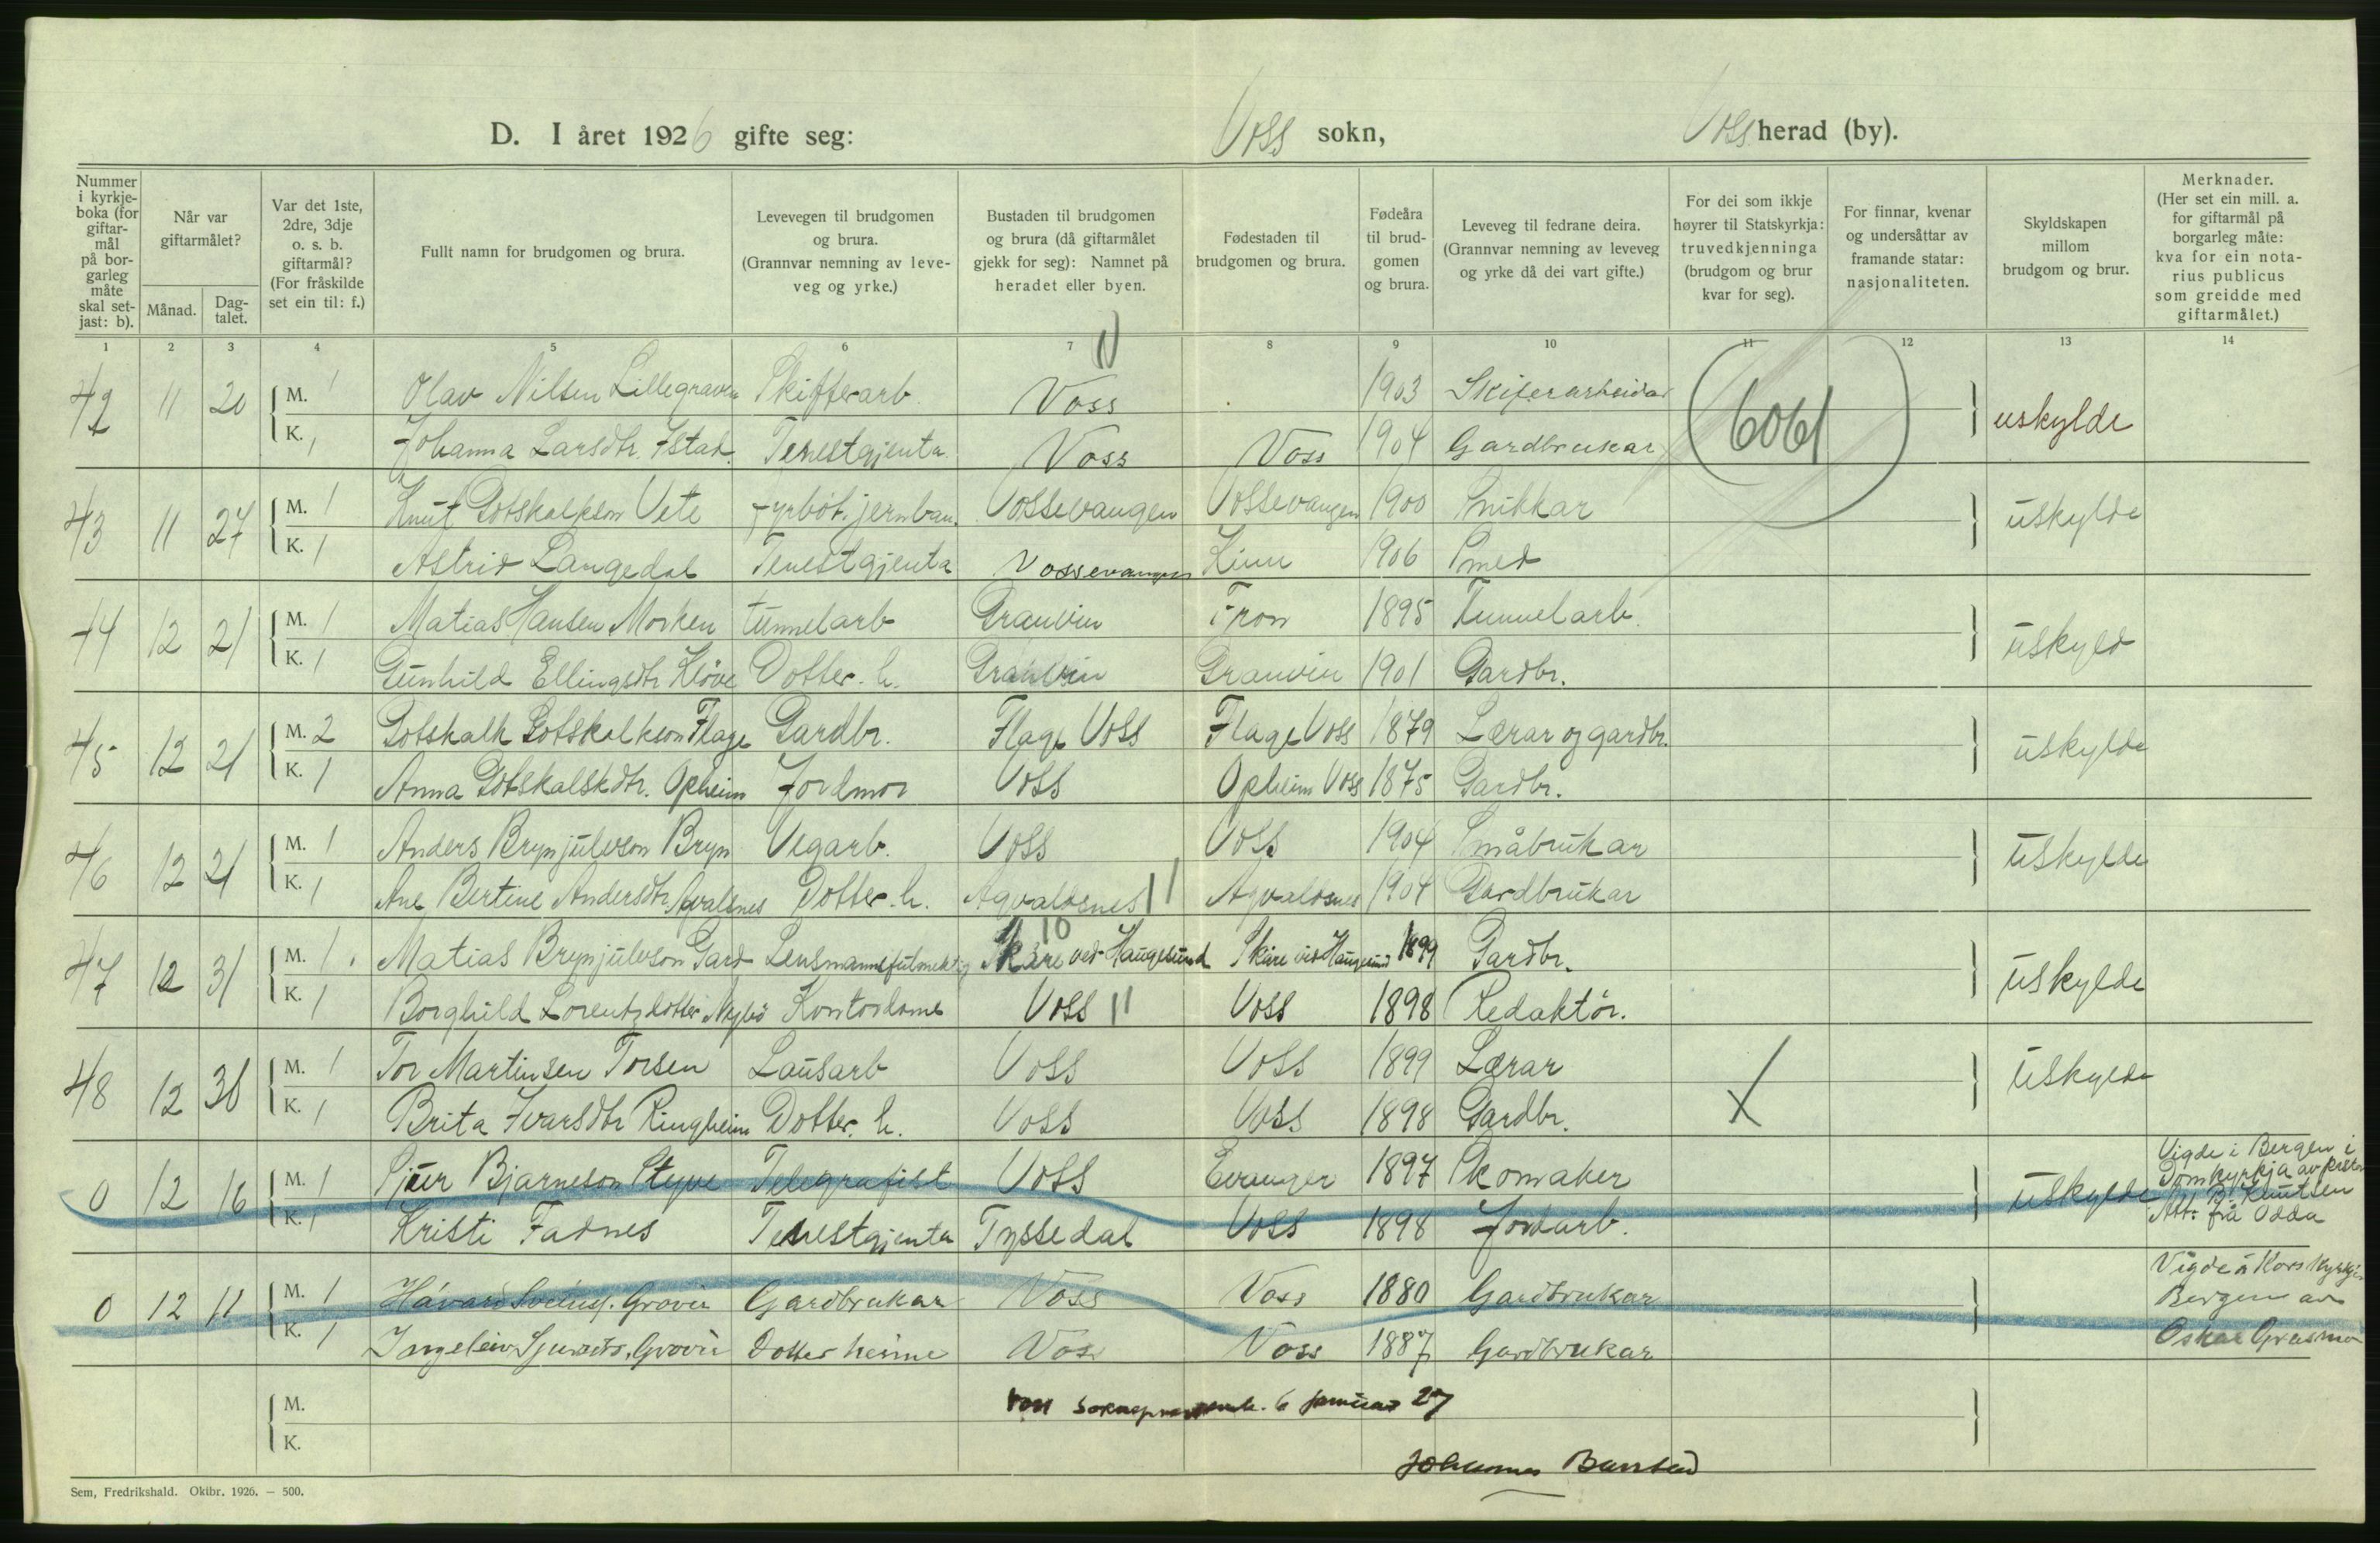 D. I året 1926 gifte seg: Voss sokn, Voss herad (by).
Nummer i kyrkje-boka (for giftar-mål på bor-garleg måte skal set-jast: b).
Når var giftarmålet?
Månad.
Dag-talet.
Var det 1ste, 2dre, 3dje o. s. b. giftarmål? (For fråskilde set ein til: f.)
Fullt namn for brudgomen og brura.
Levevegen til brudgomen og brura. (Grannvar nemning av leve-veg og yrke.)
Bustaden til brudgomen og brura (då giftarmålet gjekk for seg): Namnet på heradet eller byen.
Fødestaden til brudgomen og brura.
Fødeåra til brud-gomen og brura.
Leveveg til fedrane deira. (Grannvar nemning av leveveg og yrke då dei vart gifte.)
For dei som ikkje høyrer til Statskyrkja: truvedkjenninga (brudgom og brur kvar for seg).
For finnar, kvenar og undersåttar av framande statar: nasjonaliteten.
Skyldskapen millom brudgom og brur.
Merknader. (Her set ein mill. a. for giftarmål på borgarleg måte: kva for ein nota-rius publicus som greidde med giftarmålet.)
1 2 3 4 5 6 7 8 9 10 11 12 13 14
42 11 20 M. 1 Olav Nilsen Lillegraven Skifferarb. Voss 1903 Skiferarbeidar 6061 uskylde
K. 1 Johanna Larsdtr. Istad. Tenestgjenta Voss Voss 1904 Gardbrukar
43 11 27 M. 1 Knut Gotskalkson Vete Fyrböt. jernban. Vossevangen Vossevangen 1900 Snikkar uskylde
K. 1 Astrid Langedal Tenestgjenta Vossevangen Kinn 1906 Smed
44 12 21 M. 1 Matias Hansen Morken tunnelarb Granvin Fron 1895 Tunnelarb. uskyld
K. 1 Gunhild Ellingsdtr Kløve Dotter. h. Granvin Granvin 1901 Gardbr.
45 12 21 M. 2 Gotskalk Gotskalkson Flage Gardbr. Flage Voss Flage Voss 1879 Lærar og gardbr. uskylde
K. 1 Anna Gotskalskdtr. Opheim Jordmor Voss Opheim Voss 1875 Gardbr.
46 12 21 M. 1 Anders Brynjulvson Bryn Vegarb. Voss Voss 1904 Småbrukar uskylde
K. 1 Ane Bertine Andersdtr Avalsnes Dotter. h. Agvaldsnes Agvaldsnes 1904 Gardbrukar
47 12 31 M. 1 Matias Brynjulvson Gard Lensmannsfulmektig Skåre ved Haugesund Skåre ved Haugesund 1899 Gardbr. uskylde
K. 1 Borghild Lorentzdotter Nybö Kontordame Voss Voss 1898 Redaktör.
48 12 30 M. 1 Tor Martinsen Torsen Lausarb Voss Voss 1899 Lærar uskylde
K. 1 Brita Ivarsdtr Ringheim Dotter. h. Voss Voss 1898 Gardbr.
0 12 16 M. 1 Sjur Bjarneson Styve Telegrafist Voss Evanger 1897 Skomaker uskylde Vigde i Bergen i Domkyrkja av prest Knutsen Att: frå Odda
K. 1 Kristi Fadnes Tenestgjenta Tyssedal Voss 1898 Jordarb.
0 12 11 M. 1 Håvard Grovu Gardbrukar Voss Voss 1880 Gardbrukar Vigde i Korskyrkja Bergen av Oskar
K. 1 Ingeleiv Sjursdtr. Grovu Dotter heime Voss Voss 1887 Gardbrukar
M.
K.
Voss 6 januar 27
Johannes
Sem, Fredrikshald. Oktbr. 1926. — 500.